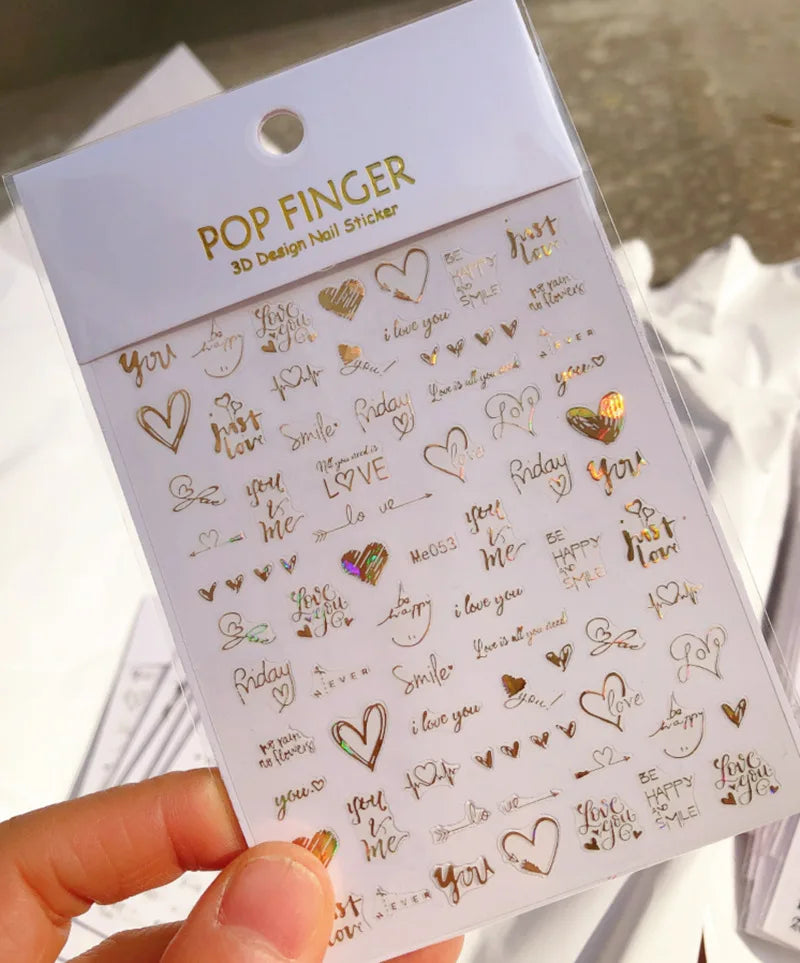 POP FINGER
3D Design Nail Sticker
just
love
BE
HAPPY
AND
SMILE
no rain
no flowers
Love
You
i love you
be
happy
You
you!
NEVER
Love is all you need
you
just
love
Smile
Friday
Love
All you need is
LOVE
love
Friday
You
you
&
me
lo ve
Me053
you
&
me
BE
HAPPY
AND
SMILE
just
love
Love
You
be
happy
i love you
Love is all you need
Friday
NEVER
Smile
you!
love
Love
no rain
no flowers
i love you
be
happy
you
you
&
me
lo ve
Love
You
BE
HAPPY
AND
SMILE
Love
You
just
love
NEVER
You